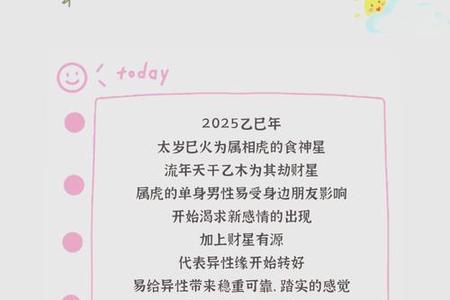 today
2025乙巳年
太岁巳火为属相虎的食神星
流年天干乙木为其劫财星
属虎的单身男性易受身边朋友影响
开始渴求新感情的出现
加上财星有源
代表异性缘开始转好
易给异性带来稳重可靠、踏实的感觉